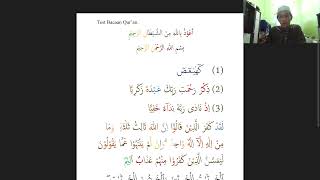 Test Bacaan Qur'an
أعوذ بالله من الشيطان الرجيم
بسم الله الرحمن الرحيم
(1) كهيعص
(2) ذكر رحمت ربك عبده زكريا
(3) إذ نادى ربه نداء خفيا
لقد كفر الذين قالوا إن الله ثالث ثلاثة وما
من إله إلا إله واحد وإن لم ينتهوا عما يقولون
ليمسن الذين كفروا منهم عذاب أليم